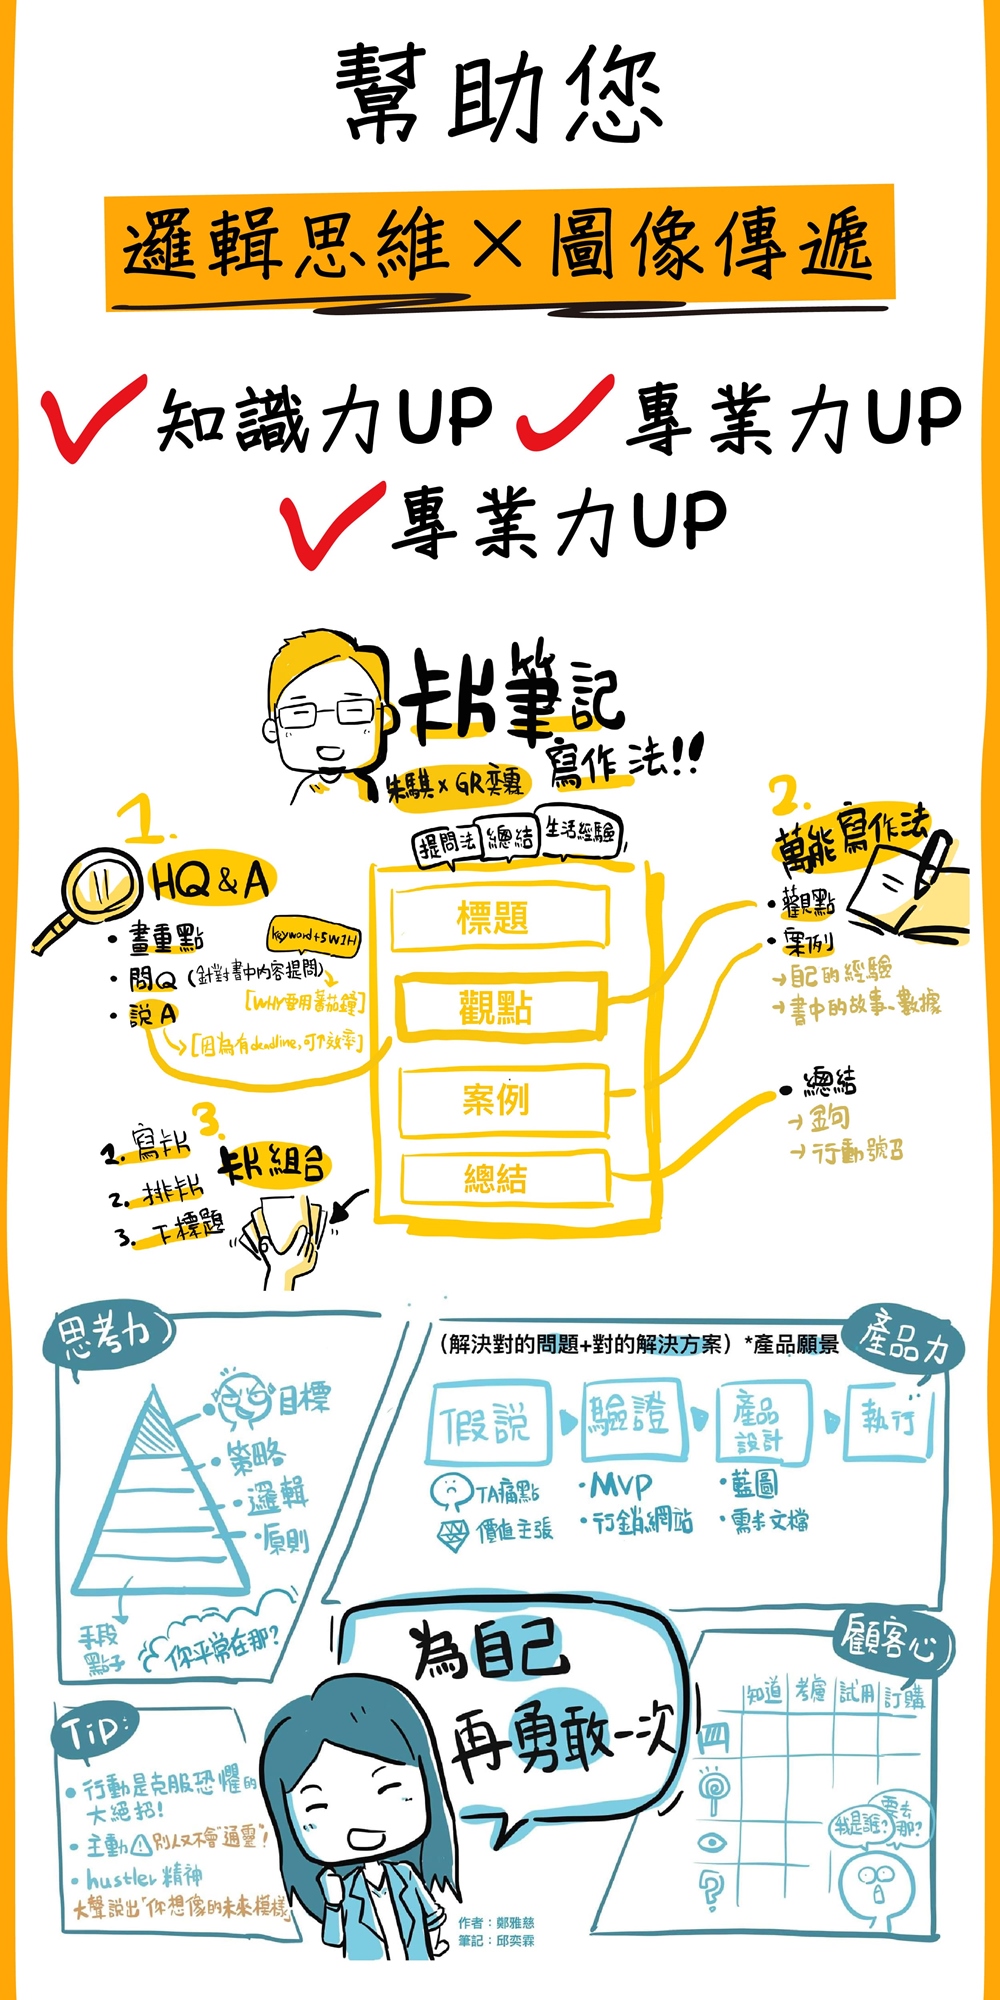 幫助您
邏輯思維×圖像傳遞
知識力UP 專業力UP
專業力UP
卡片筆記
寫作法!!
朱騏 x GR奕霖
提問法 總結 生活經驗
標題
觀點
案例
總結
1.
HQ & A
・畫重點
keyword+5W1H
・問Q(針對書中內容提問)
[WHY要用蕃茄鐘]
・說A
[因為有deadline,可↑效率]
2.
萬能寫作法
・觀點
・案例
→自己的經驗
→書中的故事、數據
・總結
→金句
→行動號召
3.
卡片組合
1. 寫卡片
2. 排卡片
3. 下標題
思考力
目標
・策略
・邏輯
・原則
手段
點子
你平常在那?
產品力
(解決對的問題+對的解決方案)*產品願景
假說
驗證
產品
設計
執行
TA痛點
價值主張
・MVP
・行銷網站
・藍圖
・需求文檔
為自己
再勇敢一次
顧客心
知道 考慮 試用 訂購
我是誰?
要去
那?
Tip:
・行動是克服恐懼的
大絕招!
・主動 別人又不會"通靈"!
・hustler精神
大聲說出"你想像的未來模樣"
作者:鄭雅慈
筆記:邱奕霖